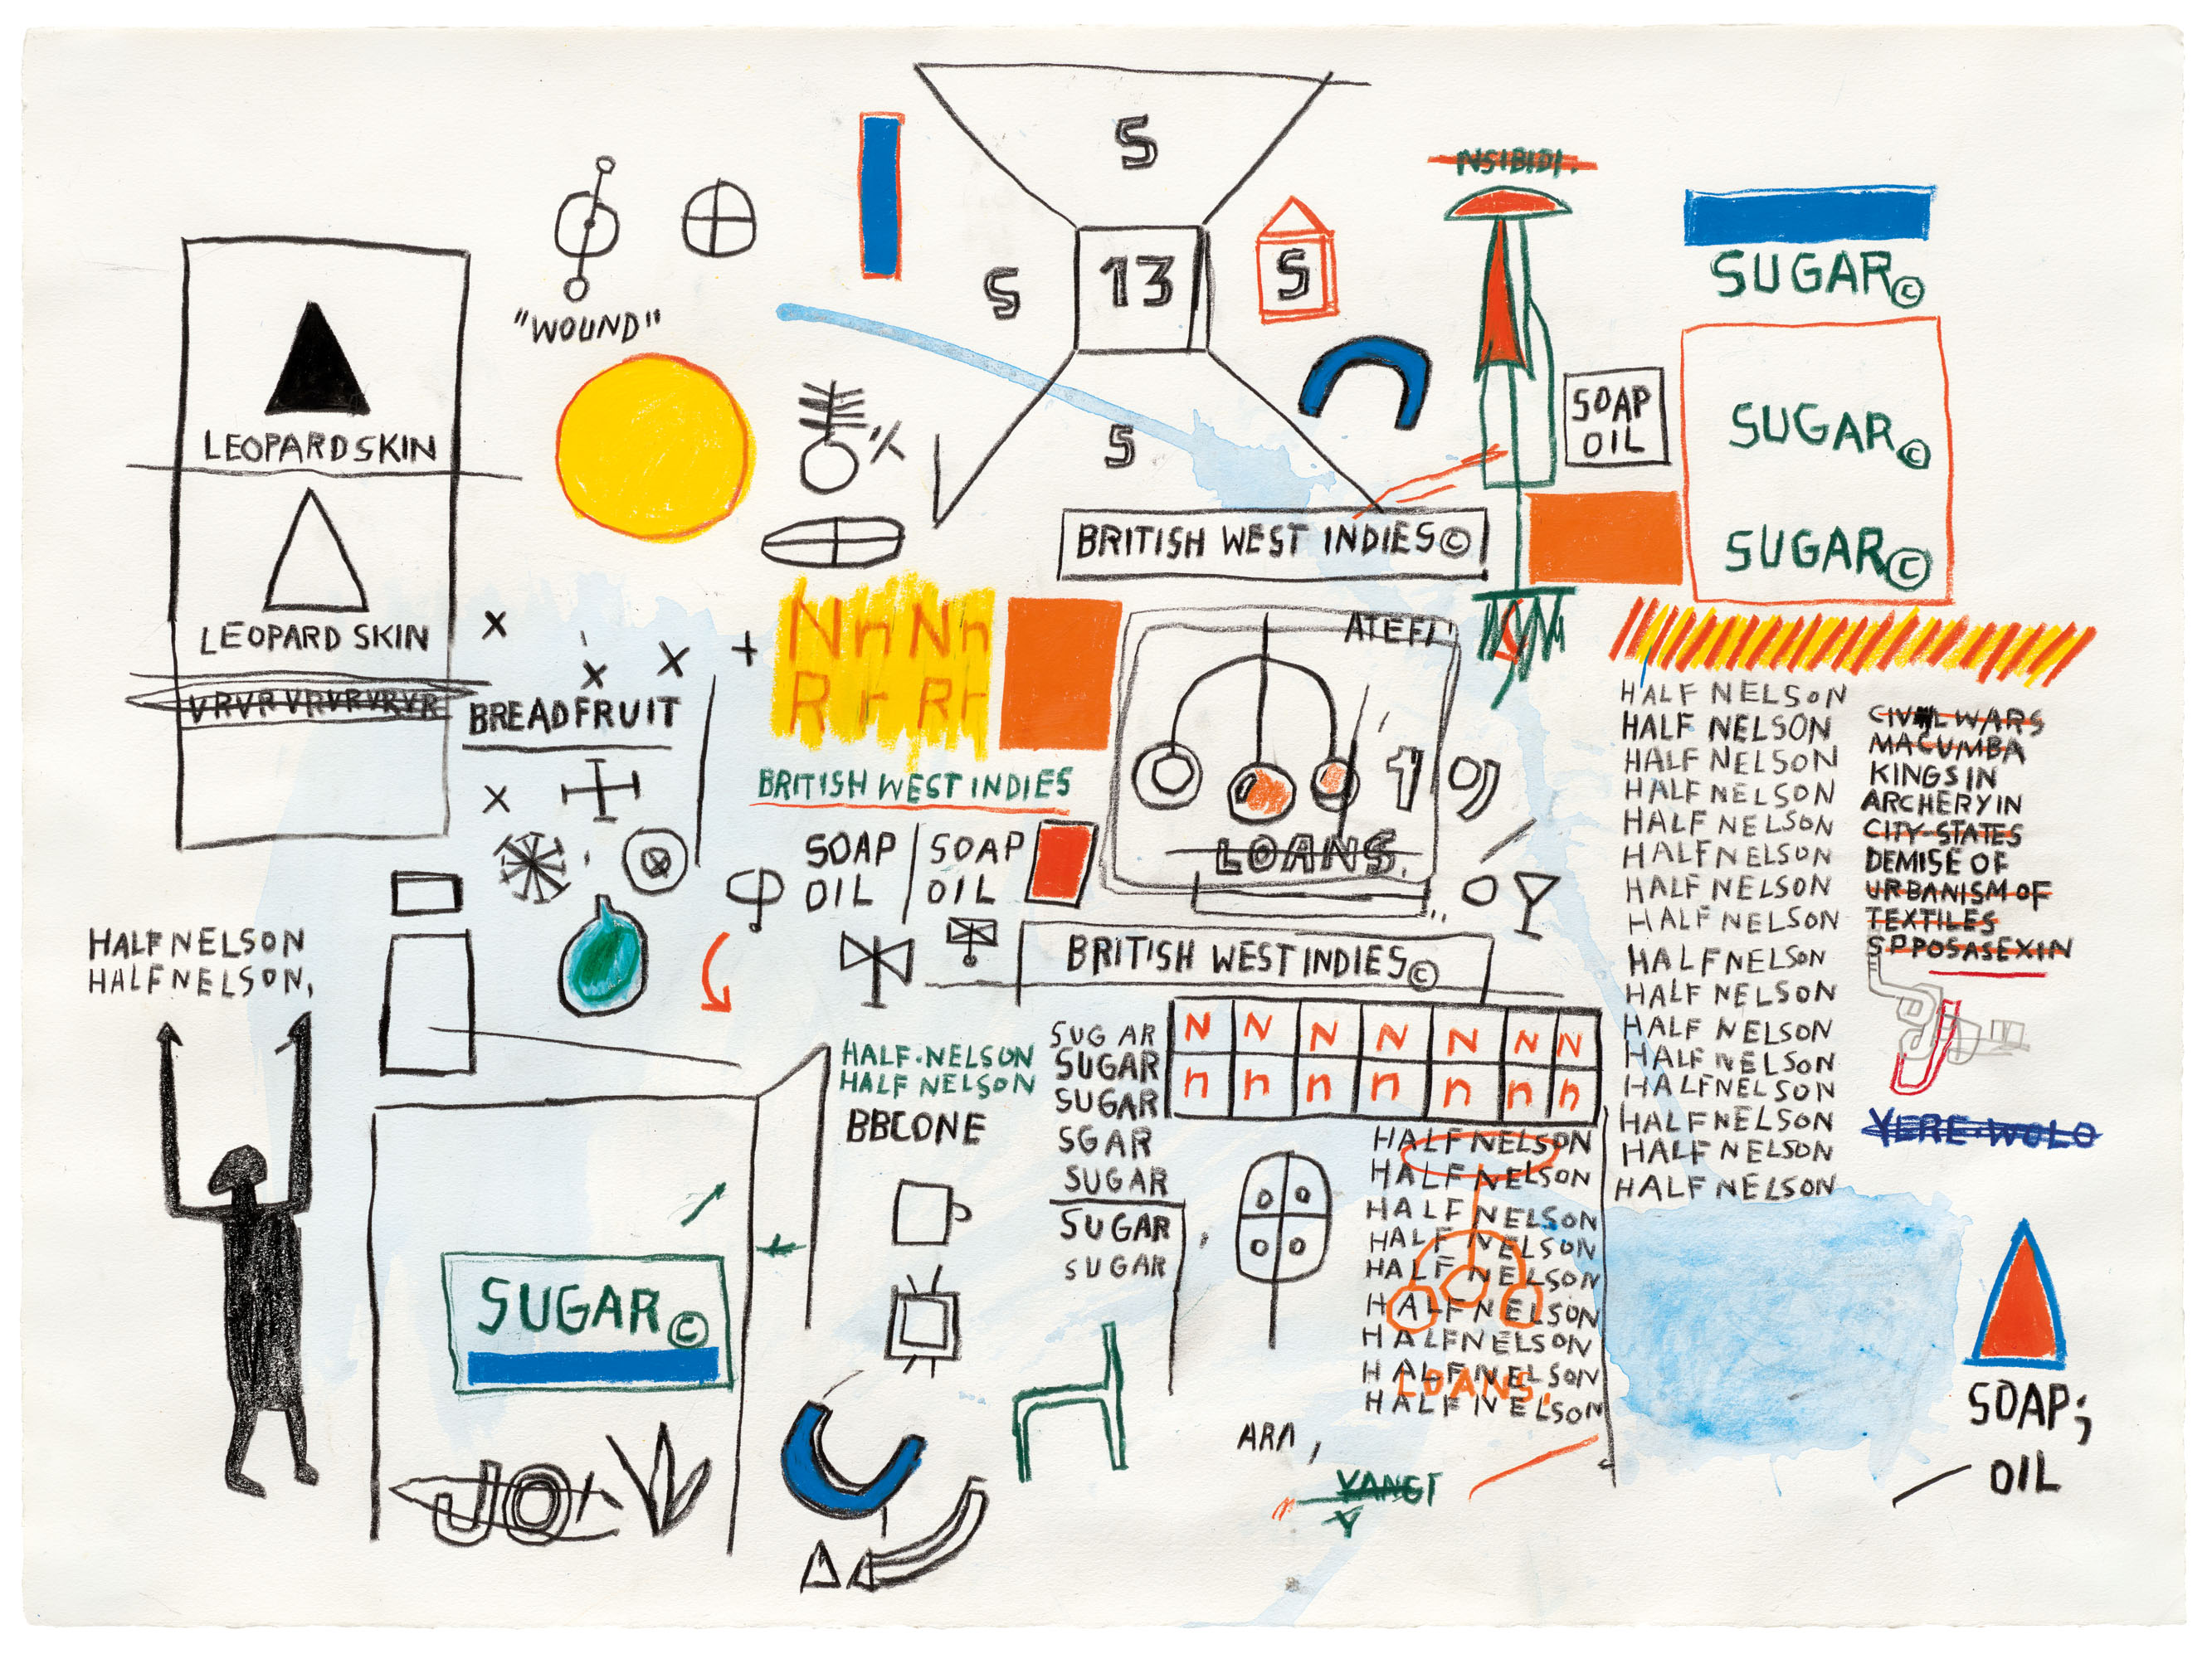 NSIBIDI.
S
13
S
S
S
"WOUND"
SUGAR©
SUGAR©
SUGAR©
SOAP
OIL
LEOPARD SKIN
LEOPARD SKIN
VRVRVRVRVRVR
BREADFRUIT
BRITISH WEST INDIES©
NnNn
RrRr
BRITISH WEST INDIES
SOAP
OIL
SOAP
OIL
LOANS.
BRITISH WEST INDIES©
HALF NELSON
HALF NELSON
HALF NELSON
HALF NELSON
HALF NELSON
HALF NELSON
HALF NELSON
HALF NELSON
HALF NELSON
HALF NELSON
HALF NELSON
HALF NELSON
HALF NELSON
HALF NELSON
HALF NELSON
HALF NELSON
CIVIL WARS
MACUMBA
KINGS IN
ARCHERY IN
CITY-STATES
DEMISE OF
URBANISM OF
TEXTILES
YERE-WOLO
HALF NELSON
HALF NELSON,
HALF-NELSON
HALF NELSON
BBCONE
SUGAR
SUGAR
SUGAR
SGAR
SUGAR
SUGAR
SUGAR
N N N N N N N
n n n n n n n
HALF NELSON
HALF NELSON
HALF NELSON
HALF NELSON
HALF NELSON
HALF NELSON
HALF NELSON
HALF NELSON
HALF NELSON
LOANS.
SUGAR©
JOY
YANGT
Y
SOAP;
OIL